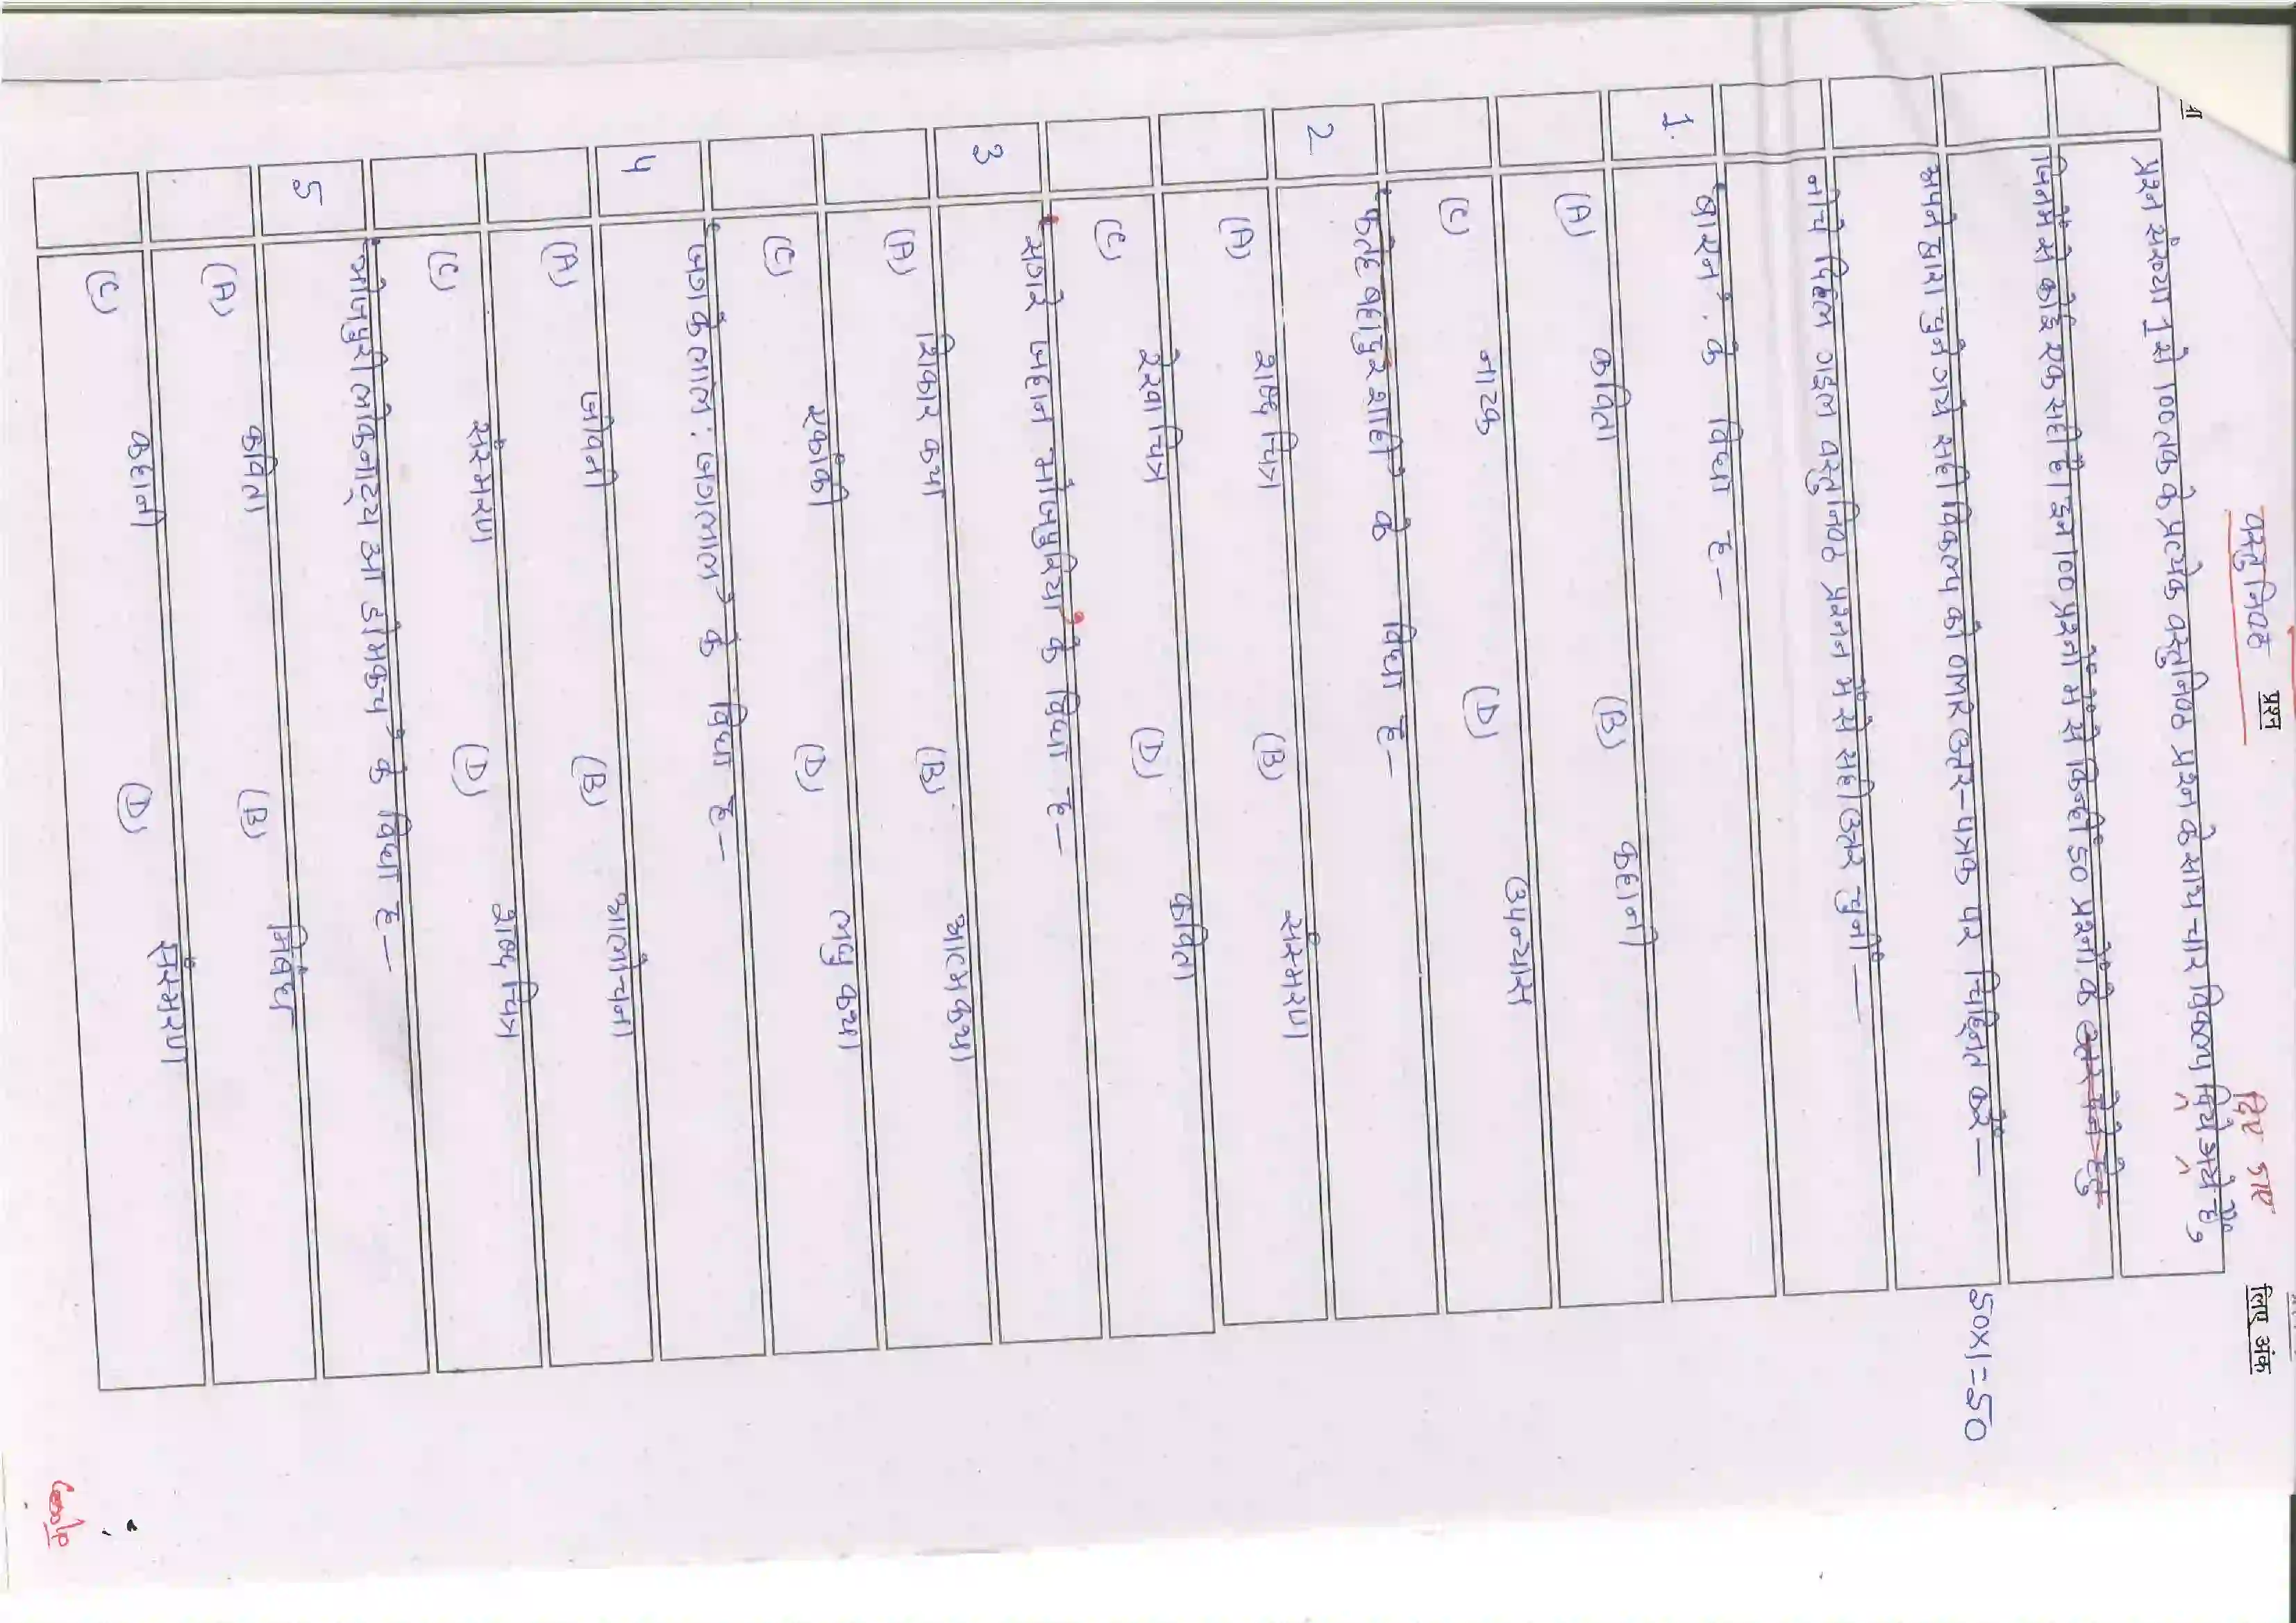 वस्तुनिष्ठ प्रश्न
लिए अंक
दिए गए
प्रश्न संख्या 1 से 100 तक के प्रत्येक वस्तुनिष्ठ प्रश्न के साथ चार विकल्प दिये गये हैं,
जिनमें से कोई एक सही है। इन 100 प्रश्नों में से किन्हीं 50 प्रश्नों के उत्तर देने हेतु
अपने द्वारा चुने गये सही विकल्प को OMR उत्तर-पत्रक पर चिह्नित करें— 50x1=50
नीचे दिहल गइल वस्तुनिष्ठ प्रश्नन में से सही उत्तर चुनीं —
1. 'बारन' के विधा ह—
(A) कविता (B) कहानी
(C) नाटक (D) उपन्यास
2 'फतेह बहादुर शाही' के विधा ह—
(A) शब्द चित्र (B) संस्मरण
(C) रेखा चित्र (D) कविता
3 'सगरे जहान भोजपुरिया' के विधा ह—
(A) शिकार कथा (B) आत्म कथा
(C) एकांकी (D) लघु कथा
4 'जगके लाल : जगलाल' के विधा ह—
(A) जीवनी (B) आलोचना
(C) संस्मरण (D) शब्द चित्र
5 'भोजपुरी लोकनाट्य आ डोमकच' के विधा ह—
(A) कविता (B) निबंध
(C) कहानी (D) संस्मरण